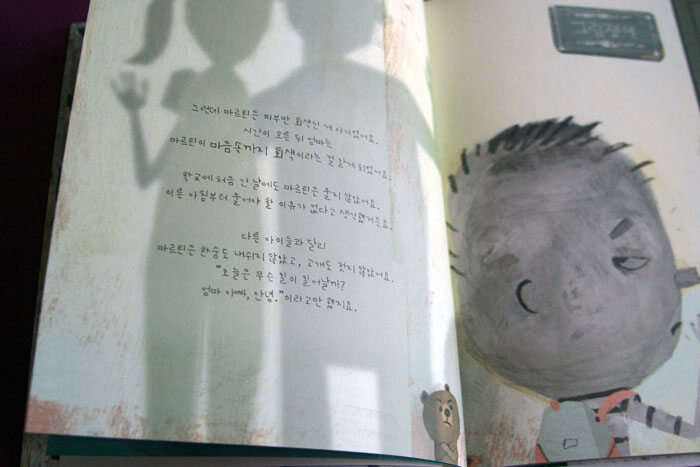 그런데 마르틴은 피부만 회색인 게 아니었어요.
시간이 흐른 뒤 엄마는
마르틴이 마음속까지 회색이라는 걸 알게 되었거요.
학교에 처음 간 날에도 마르틴은 울지 않았어요.
이른 아침부터 울어야 할 이유가 없다고 생각했거든요.
다른 아이들과 달리
마르틴은 한숨도 내쉬지 않았고, 고개도 젓지 않았어요.
"오늘은 무슨 일이 일어날까?
엄마 아빠, 안녕."이라고만 했지요.